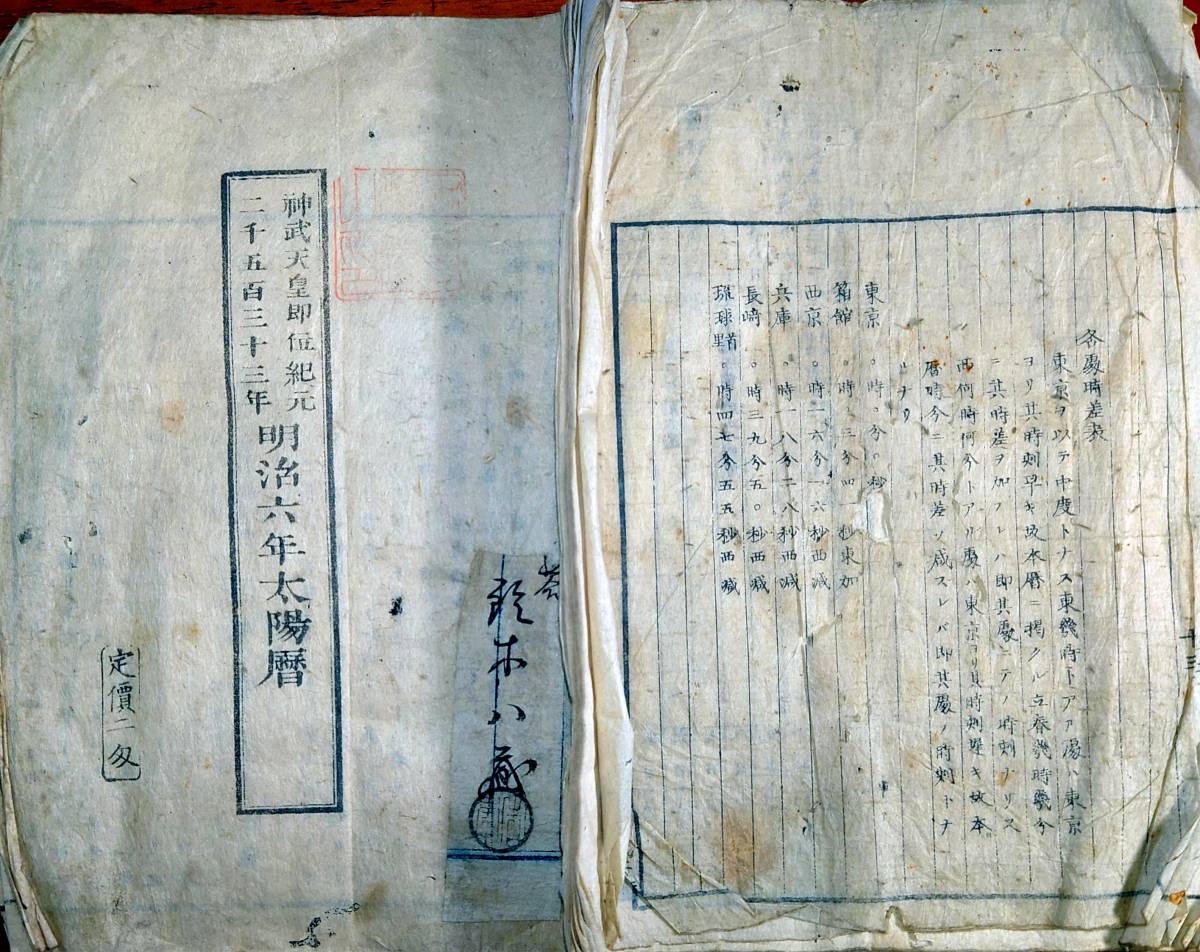 各處時差表
東京ヲ以テ中度トナス東幾時トアル處ハ東京
ヨリ其時刻早キ故本暦ニ掲クル立春幾時幾分
ニ其時差ヲ加フレハ即其處ニテノ時刻ナリ又
西何時何分トアル處ハ東京ヨリ其時刻遲キ故本
暦時分ニ其時差ヲ减スレバ即其處ノ時刻トナ
ルナリ
東京 〇時〇分〇秒
箱館 〇時〇三分四一秒東加
西京 〇時一六分一六秒西减
兵庫 〇時一八分二八秒西减
長崎 〇時三九分五〇秒西减
琉球 〇時四七分五五秒西减
十三
神武天皇即位紀元
二千五百三十三年
明治六年太陽暦
定價二匁